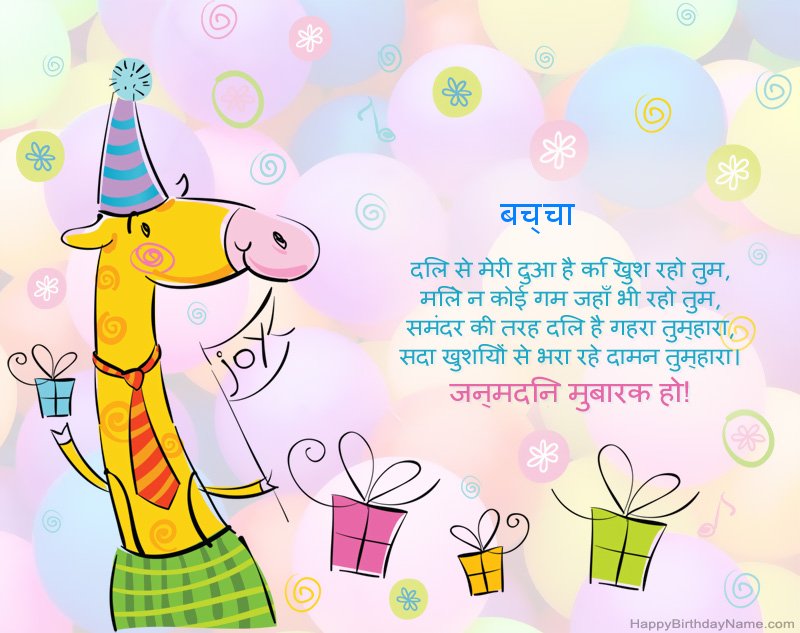 बच्चा
दिल से मेरी दुआ है कि खुश रहो तुम,
मिले न कोई गम जहाँ भी रहो तुम,
समंदर की तरह दिल है गहरा तुम्हारा,
सदा खुशियों से भरा रहे दामन तुम्हारा।
जन्मदिन मुबारक हो!
joy
HappyBirthdayName.com